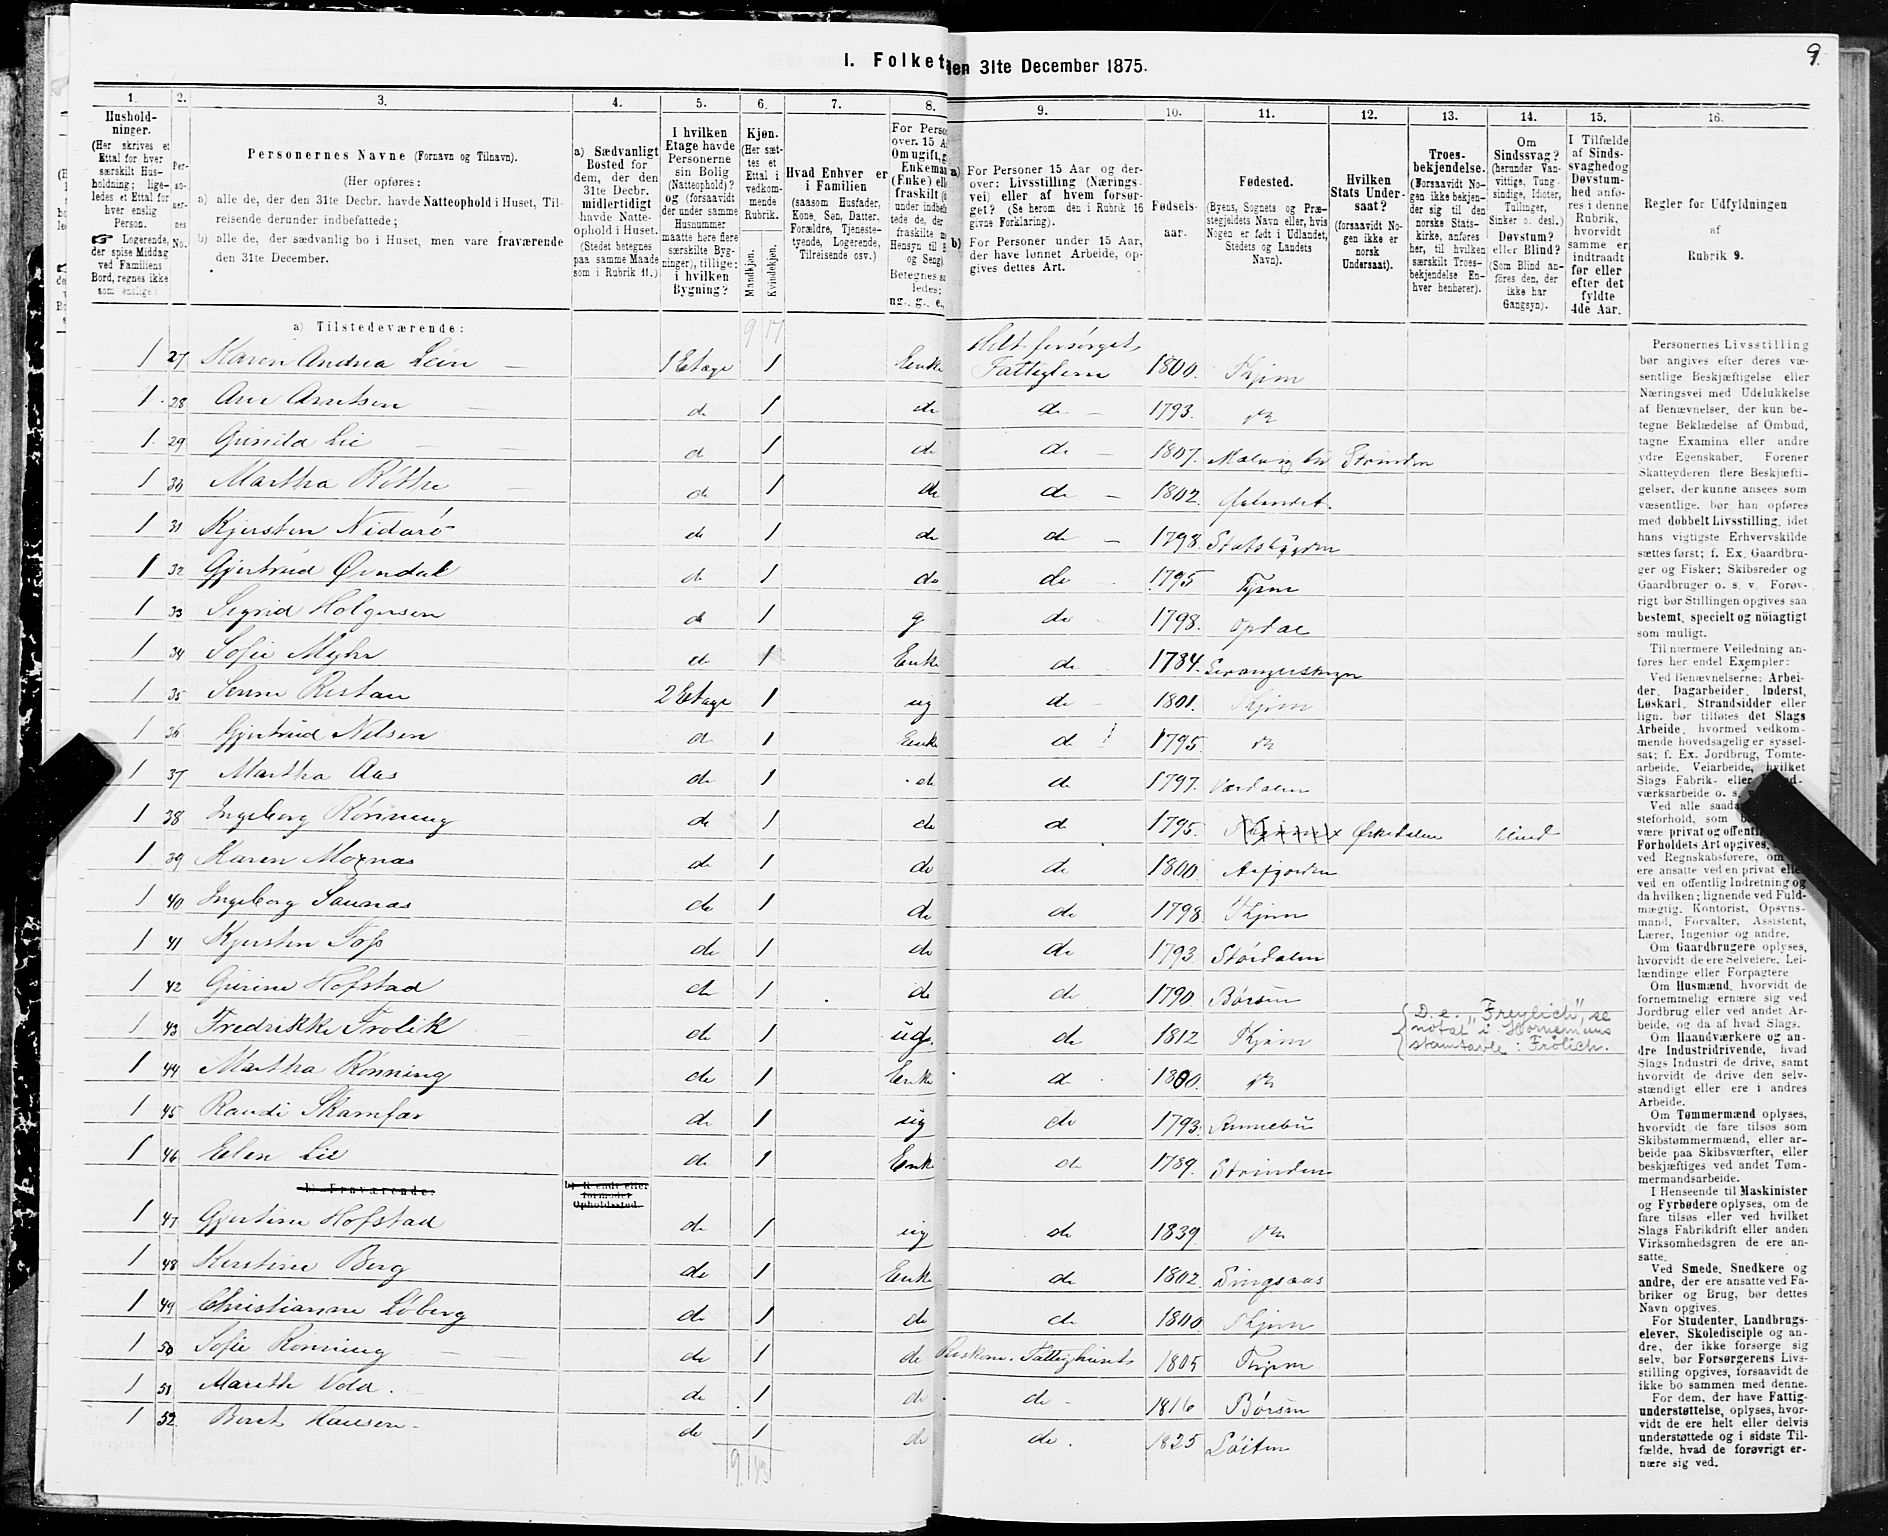 9
I. Folket
den 31te December 1875.
1. 2. 3. 4. 5. 6. 7. 8. 9. 10. 11. 12. 13. 14. 15. 16.
Hushold-
ninger.
(Her skrives et
Ettal for hver
særskilt Hus-
holdning; lige-
ledes et Ettal for
hver enslig
Person.
Logerende,
der spise Middag
ved Familiens
Bord, regnes ikke
som enslige.)
Per-
so-
ner-
nes
No.
Personernes Navne (Fornavn og Tilnavn).
(Her opføres:
a) alle de, der den 31te Decbr. havde Natteophold i Huset, Til-
reisende derunder indbefattede;
b) alle de, der sædvanlig bo i Huset, men vare fraværende
den 31te December.
a) Sædvanligt
Bosted for
dem, der den
31te Decbr.
midlertidigt
havde Natte-
ophold i Huset.
(Stedet betegnes
paa samme Maade
som i Rubrik 11.)
I hvilken
Etage havde
Personerne
sin Bolig
(Natteophold)?
og (forsaavidt
der under samme
Husnummer
maatte høre flere
særskilte Byg-
ninger), tillige:
i hvilken
Bygning?
Kjøn.
(Her sæt-
tes et
Ettal i
vedkom-
mende
Rubrik.
Mandkjøn.
Kvindekjøn.
Hvad Enhver er
i Familien
(saasom Husfader,
Kone, Søn, Datter,
Forældre, Tjeneste-
tyende, Logerende,
Tilreisende osv.)
For Perso
over 15 A
Om ugift, g
Enkeman
(Enke) ell
fraskilt (
under indbef
tede de, der
fraskilte m
Hensyn til B
og Seng)
Betegnes sa
ledes:
ug., g., e.,
a) For Personer 15 Aar og der-
over: Livsstilling (Nærings-
vei) eller af hvem forsør-
get? (Se herom den i Rubrik 16
givne Forklaring).
b) For Personer under 15 Aar,
der have lønnet Arbeide, op-
gives dettes Art.
Fødsels-
aar.
Fødested.
(Byens, Sognets og Præ-
stegjeldets Navn eller, hvis
Nogen er født i Udlandet,
Stedets og Landets
Navn).
Hvilken
Stats Under-
saat?
(forsaavidt No-
gen ikke er
norsk
Undersaat).
Troes-
bekjendelse.
(Forsaavidt No-
gen ikke bekjen-
der sig til den
norske Stats-
kirke, anføres
her, til hvilken
særskilt Troes-
bekjendelse En-
hver henhører).
Om
Sindssvag?
(herunder Van-
vittige, Tung-
sindige, Idioter,
Tullinger,
Sinker o. desl.)
Døvstum?
eller Blind?
(Som Blind an-
føres den, der
ikke har
Gangsyn).
I Tilfælde
af Sinds-
svaghed og
Døvstum-
hed anfø-
res i denne
Rubrik,
hvorvidt
samme er
indtraadt
før eller
efter det
fyldte
4de Aar.
Regler for Udfyldningen
af
Rubrik 9.
a) Tilstedeværende:
9 17
1 27 Karen Andrea Lein 1 Etage 1 Enke Helt forsørget Fattiglem 1800. Thjem
1 28 Ane Arntsen do 1 do do 1793. do
1 29 Gunild Lie do 1 do do 1807. Malvig in Strinden
1 30 Martha Røthe do 1 do do 1802.
1 31 Kjersten Nidarö do 1 do do 1798. Statsbygden
1 32 Gjertrud Øvndal do 1 do do 1795 Thjem
1 33 Sigrid Holgersen do 1 g do 1798. Opdal
1 34 Sofie Myhr do 1 Enke do 1784.
1 35 Ristan 2 Etage 1 ug do 1801. Thjem
1 36 Gjertrud Nilsen do 1 Enke do 1795. do
1 37 Martha Aas do 1 do do 1797. Værdalen
1 38 Ingeborg Rönning do 1 do do 1795. Thjem Ørkedalen blind
1 39 Karen Moxnas do 1 do do 1800. Aafjorden
1 40 Ingeborg Saunas do 1 do do 1798. Thjem
1 41 Kjersten Foss do 1 do do 1793. Stördalen
1 42 Gurine Hofstad do 1 do do 1790. Börsen
1 43 Fredrikke Frolik do 1 ug. do 1812 Thjem
{ D. e. "Freylich", se
notat i Hornemans
stamtavle: Frölich.
1 44 Martha Rønning do 1 Enke do 1800. do
1 45 Randi Skamfar do 1 ug do 1793. Rennebu
1 46 Elen Lie do 1 Enke do 1789. Strinden
b) Fraværende:
b) Kjendt eller
formodet
Opholdssted.
1 47 Gjertine Hofstad do 1 ug do 1839. do
1 48 Kirstine Berg do 1 Enke do 1802. Singsaas
1 49 Christianne Löberg do 1 do do 1800. Thjem
1 50 Sofie Rönning do 1 do Fattighuset 1805 Thjem
1 51 Marith Vold. do 1 do do 1816 Börsen
1 52 Berit Hansen do 1 do do. 1825 Löiten
9 43
Personernes Livsstilling
bør angives efter deres væ-
sentlige Beskjæftigelse eller
Næringsvei med Udelukkelse
af Benævnelser, der kun be-
tegne Beklædelse af Ombud,
tagne Examina eller andre
ydre Egenskaber. Forener
Skatteyderen flere Beskjæfti-
gelser, der kunne ansees som
væsentlige, bør han opføres
med dobbelt Livsstilling, idet
hans vigtigste Erhvervskilde
sættes først; f. Ex. Gaardbru-
ger og Fisker; Skibsreder og
Gaardbruger o. s. v. Forøv-
rigt bør Stillingen opgives saa
bestemt, specielt og nöiagtigt
som muligt.
Til nærmere Veiledning an-
føres her endel Exempler:
Ved Benævnelserne: Arbei-
der, Dagarbeider, Inderst,
Løskarl, Strandsidder eller
lign. bør tilføies det Slags
Arbeide, hvormed vedkom-
mende hovedsagelig er syssel-
sat; f. Ex. Jordbrug, Tomte-
arbeide, Veiarbeide, hvilket
Slags Fabrik- eller
værksarbeide o. s.
Ved alle saada
steforhold, som
være privat og offentlig
Forholdets Art opgives,
ved Regnskabsførere, om
ere ansatte ved en privat eller
ved en offentlig Indretning og
da hvilken; lignende ved Fuld-
mægtig, Kontorist, Opsyns-
mand, Forvalter, Assistent,
Lærer, Ingeniør og andre.
Om Gaardbrugere oplyses,
hvorvidt de ere Selveiere, Lei-
lændinge eller Forpagtere
Om Husmænd, hvorvidt de
fornemmelig ernære sig ved
Jordbrug eller ved andet Ar-
beide, og da af hvad Slags.
Om Haandværkere og an-
dre Industridrivende, hvad
Slags Industri de drive, samt
hvorvidt de drive den selv-
stændigt eller ere i andres
Arbeide.
Om Tømmermænd oplyses,
hvorvidt de fare tilsøs som
Skibstømmermænd, eller ar-
beide paa Skibsværfter, eller
beskjæftiges ved andet Tøm-
mermandsarbeide.
I Henseende til Maskinister
og Fyrbødere oplyses, om de
fare tilsøs eller ved hvilket
Slags Fabrikdrift eller anden
Virksomhedsgren de ere an-
satte.
Ved Smede, Snedkere og
andre, der ere ansatte ved Fa-
briker og Brug, bør dettes
Navn opgives.
For Studenter, Landbrugs-
elever, Skoledisciple og an-
dre, der ikke forsørge sig
selv, bør Forsørgerens Livs-
stilling opgives, forsaavidt de
ikke bo sammen med denne.
For dem, der have Fattig-
understøttelse, oplyses, hvor-
vidt de ere helt eller delvis
understøttede og i sidste Til-
fælde, hvad de forøvrigt er-
nære sig ved.